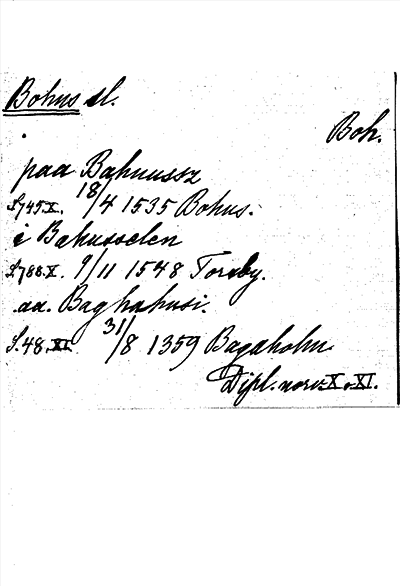 Bohus sl.
Boh.
paa Bahuussz
S. 745. X. 18/4 1535 Bohus.
i Bahusselen
S. 788. X. 9/11 1548 Torsby.
aa. Baghahusi.
S. 48. XI. 31/8 1359 Bagaholm
Dipl. norv. X o. XI.